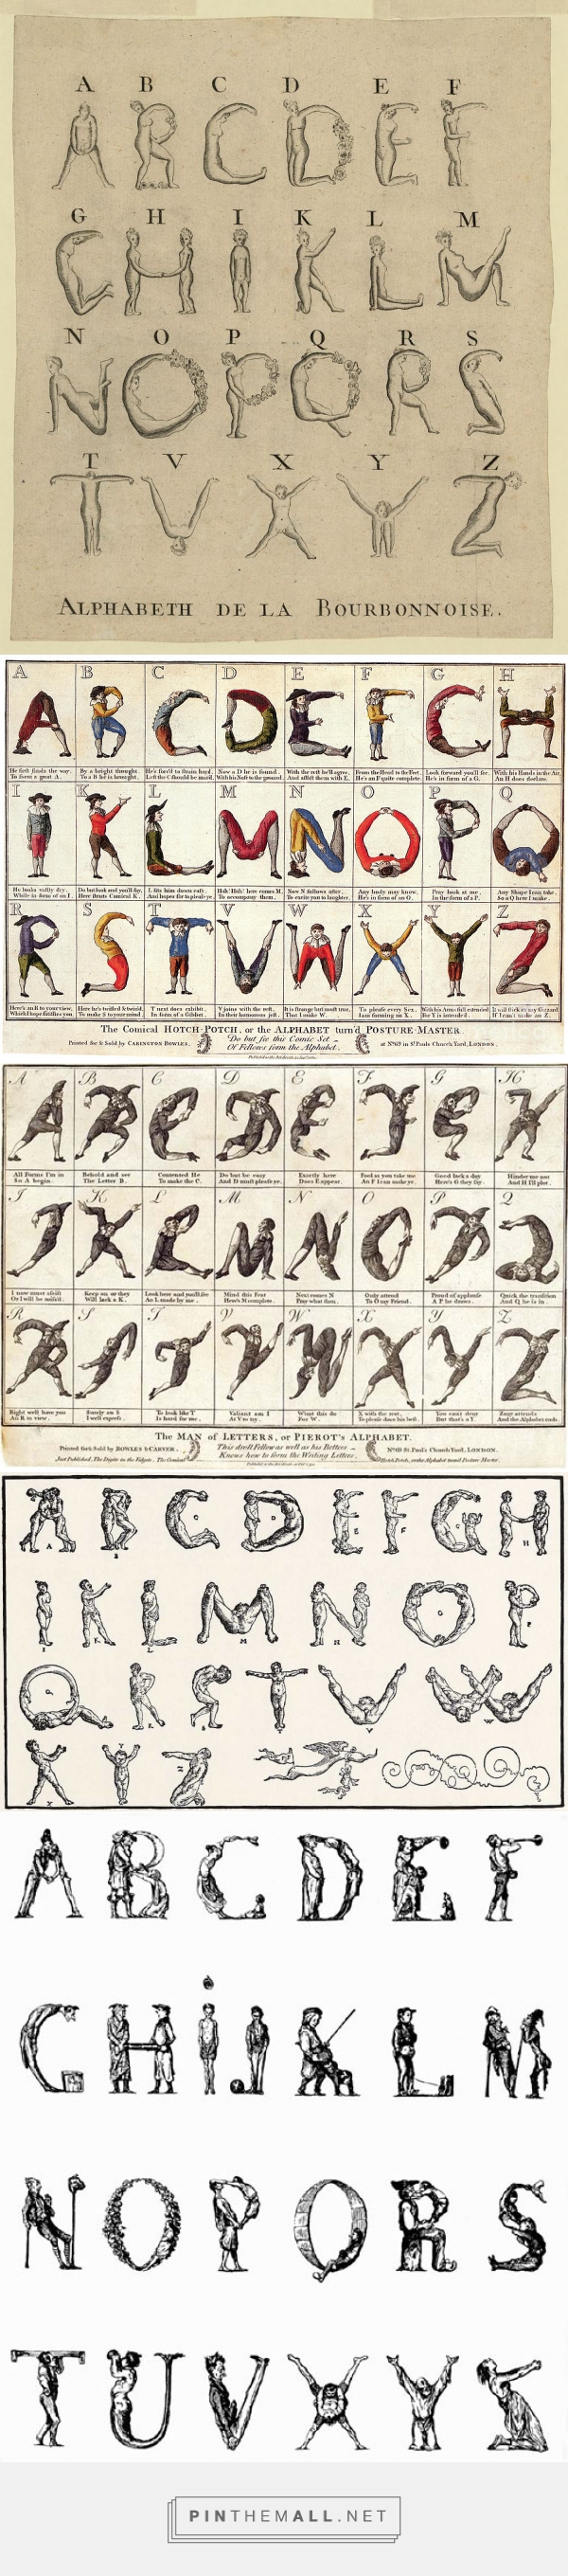 A B C D E F
G H I K L M
N O P Q R S
T V X Y Z
ALPHABETH DE LA BOURBONNOISE.
A B C D E F G H
He first finds the way, By a bright thought, He's forc'd to strain hard, Now a D he is found, With the rest he'll agree, From the Head to the Feet, Look forward you'll see, With his Hands in the Air,
To form a great A. To a B he is brought. Left the C should be marr'd. With his Nose to the ground. And assist them with E. He's an F quite complete. He's in form of a G. An H does declare.
I K L M N O P Q
He looks vastly dry, Do but look and you'll say, L sits him down easy, Huh! Huh! here comes M, Now N follows after, Any body may know, Pray look at me, Any Shape I can take,
While in form of an I. Here struts Comical K. And hopes for to please ye. To accompany them. To excite you to laughter. He's in form of an O. In the form of a P. So a Q here I make.
R S T V W X Y Z
Here's an R to your view, Here he's twisted & twin'd, T next does exhibit, V joins with the rest, It is strange but most true, To please every Sex, With his Arms full extended,
Which I hope satisfies you. To make S to your mind. In form of a Gibbet. In their humorous jest. That I make W. I am forming an X. For Y is intended. If I can't make an Z.
The Comical HOTCH-POTCH, or the ALPHABET turn'd POSTURE-MASTER.
Printed for & Sold by CARINGTON BOWLES, Do but see this Comic Set at No. 69 in St. Pauls Church Yard, LONDON.
Of Fellows form the Alphabet.
A B C D E F G H
All Forms I'm in Behold and see Contented He Do but be easy Exactly here Fool as you take me Good lack a day Hinder me not
So A begin. The Letter B. To make the C. And D must please ye. Does E appear. An F I can make ye. Here's G they say. And H I'll plot.
I K L M N O P Q
I now must assist Keep on or they Look here and you'll see Mind this Feat Next comes N Only attend Proud of applause Quick the transition
Or I will be missed. Will lack a K. An L made by me. Here's M complete. Pray what then. To O my Friend. A P he draws. And Q he is in.
R S T V W X Y Z
Right well have you Surely an S To look like T Valiant am I What this do X with the rest, You can't deny Zany attends
An R to view. I well express. Is hard for me. At V to try. For W. To please does his best. But that's a Y. And the Alphabet ends.
The MAN of LETTERS, or PIEROT'S ALPHABET.
Printed for & Sold by BOWLES & CARVER, This droll Fellow as well as his Betters No. 69 St. Paul's Church Yard, LONDON.
Just Published, The Digits in the Fidgets, The Comical Knows how to form the Writing Letters. Hotch Potch, or the Alphabet turn'd Posture Master.
A B C D E F G H
I K L M N O P
Q R S T V W
X Y Z
A B C D E F
G H I J K L M
N O P Q R S
T U V X Y Z
PINTHEMALL.NET